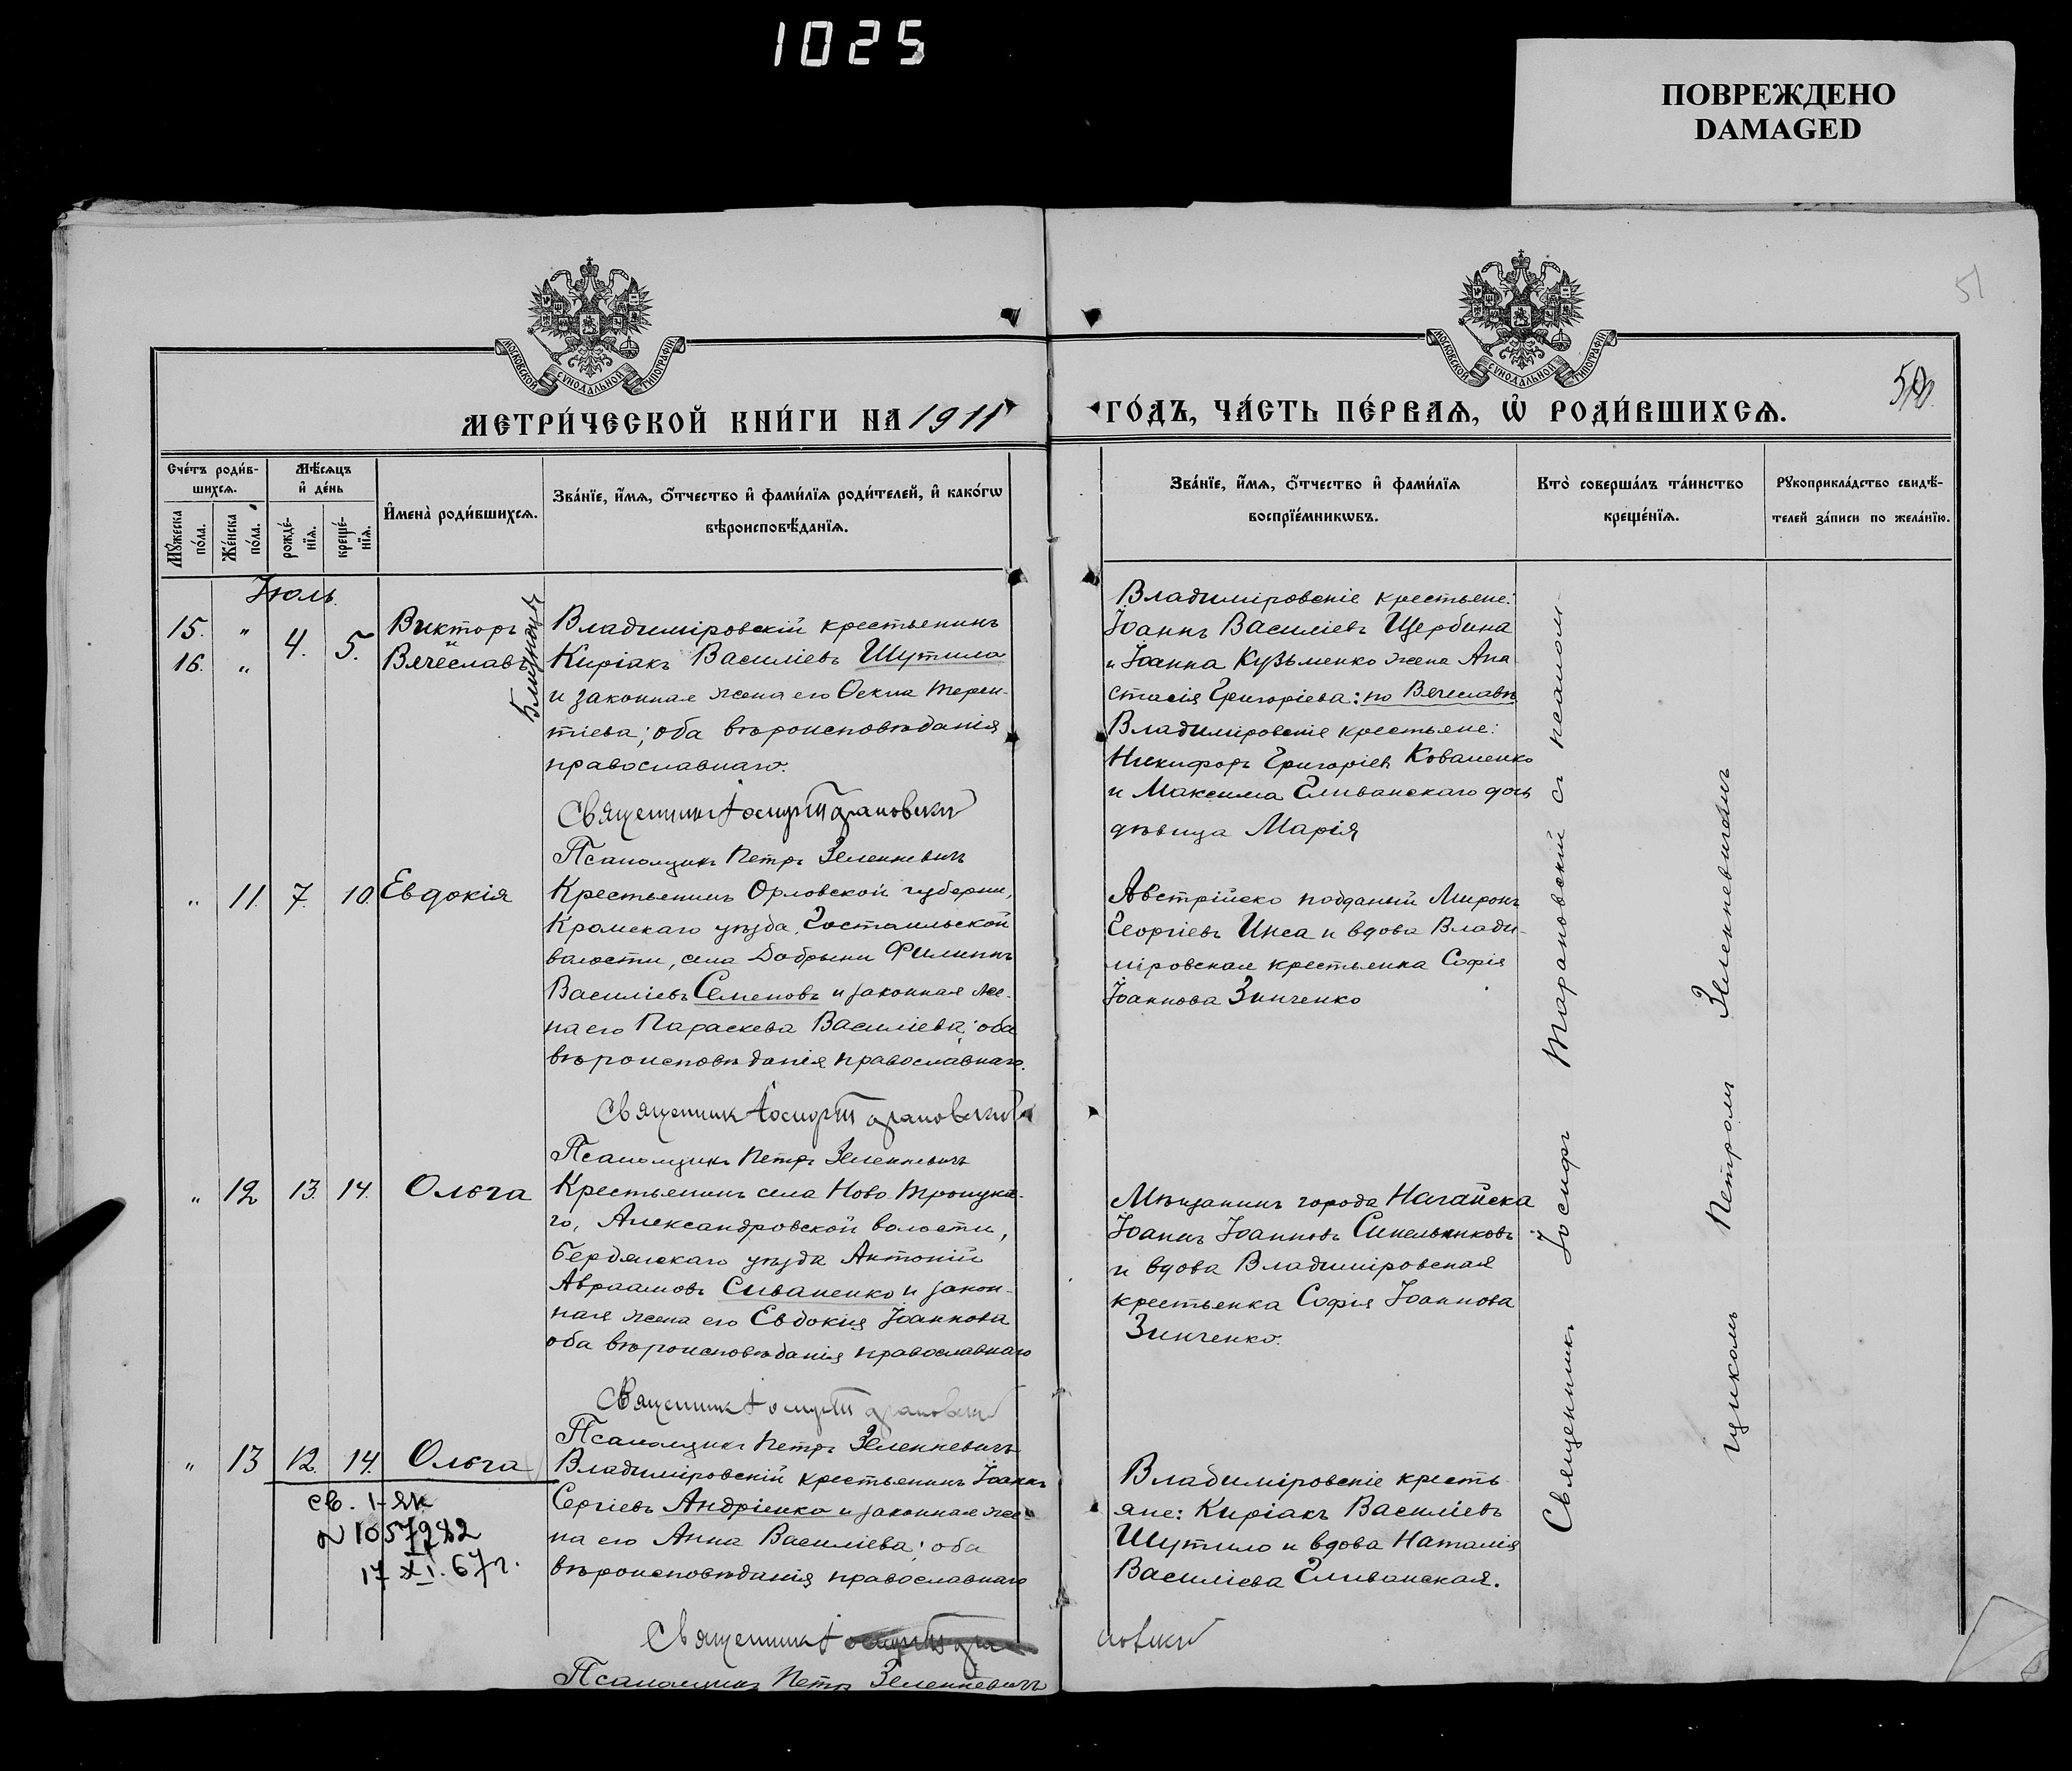 1025
ПОВРЕЖДЕНО
DAMAGED
51
50
МОСКОВСКОЙ СѴНОДАЛЬНОЙ ТИПОГРАФІИ
МОСКОВСКОЙ СѴНОДАЛЬНОЙ ТИПОГРАФІИ
МЕТРИ́ЧЕСКОЙ КНИ́ГИ НА 1911
ГО́ДЪ, ЧА́СТЬ ПЕ́РВАѦ, Ѡ҆ РОДИ́ВШИХСѦ.
Сче́тъ роди́в-
шихсѧ.
Мѣ́сѧцъ
и҆ де́нь
Мꙋ́жеска
по́ла.
Же́нска
по́ла.
рожде́-
нїѧ.
креще́-
нїѧ.
И҆мена̀ роди́вшихсѧ.
Зва́нїе, и҆́мѧ, о҆́тчество и҆ фами́лїѧ роди́телей, и҆ како́гѡ
вѣроисповѣ́данїѧ.
Зва́нїе, и҆́мѧ, о҆́тчество и҆ фами́лїѧ
воспрїе́мникѡвъ.
Кто̀ соверша́лъ та́инство
креще́нїѧ.
Рꙋкоприкла́дство свидѣ́-
телей за́писи по жела́нїю.
Іюль
15. " 4. 5. Викторъ
и
16. " Вячеславъ
близнецы
Владиміровскій крестьянинъ
Киріакъ Василіевъ Шутило
и законная жена его Ѳекла Терен-
тіева; оба вѣроисповѣданія
православнаго.
Священникъ Іосифъ Тарановскій
Псаломщикъ Петръ Зеленкевичъ
Владиміровскіе крестьяне:
Іоаннъ Василіевъ Щербина
и Іоанна Кузьменко жена Ана
стасія Григоріева: по Вячеславѣ
Владиміровскіе крестьяне:
Никифоръ Григоріевъ Коваленко
и Максима Сливанскаго дочь
дѣвица Марія
" 11. 7. 10. Евдокія
Крестьянинъ Орловской губерніи,
Кромскаго уѣзда, Гостомльской
волости, села Добрыни Филиппъ
Василіевъ Семеновъ и законная же-
на его Параскева Василіева; оба
вѣроисповѣданія православнаго.
Священникъ Іосифъ Тарановскій
Псаломщикъ Петръ Зеленкевичъ
Австрійско подданый Миронъ
Георгіевъ Инса и вдова Влади-
міровская крестьянка Софія
Іоаннова Зинченко
" 12 13. 14. Ольга
Крестьянинъ села Ново Троицка-
го, Александровской волости,
Бердянскаго уѣзда Антоній
Авраамовъ Сиваненко и закон-
ная жена его Евдокія Іоаннова
оба вѣроисповѣданія православнаго
Священникъ Іосифъ Тарановскій
Псаломщикъ Петръ Зеленкевичъ
Мѣщанинъ города Ногайска
Іоаннъ Іоанновъ Синельниковъ
и вдова Владиміровская
крестьянка Софія Іоаннова
Зинченко.
" 13 12. 14. Ольга
св. 1-ЯК
N 1057282
17 XI. 67г.
Владиміровскій крестьянинъ Іоаннъ
Сергіевъ Андріенко и законная же-
на его Анна Василіева; оба
вѣроисповѣданія православнаго
Священникъ Іосифъ Тара
новскій
Псаломщикъ Петръ Зеленкевичъ
Владиміровскіе кресть
яне: Киріакъ Василіевъ
Шутило и вдова Наталія
Василіева Сливанская.
Священникъ Іосифъ Тарановскій съ псалом-
щикомъ Петромъ Зеленкевичемъ